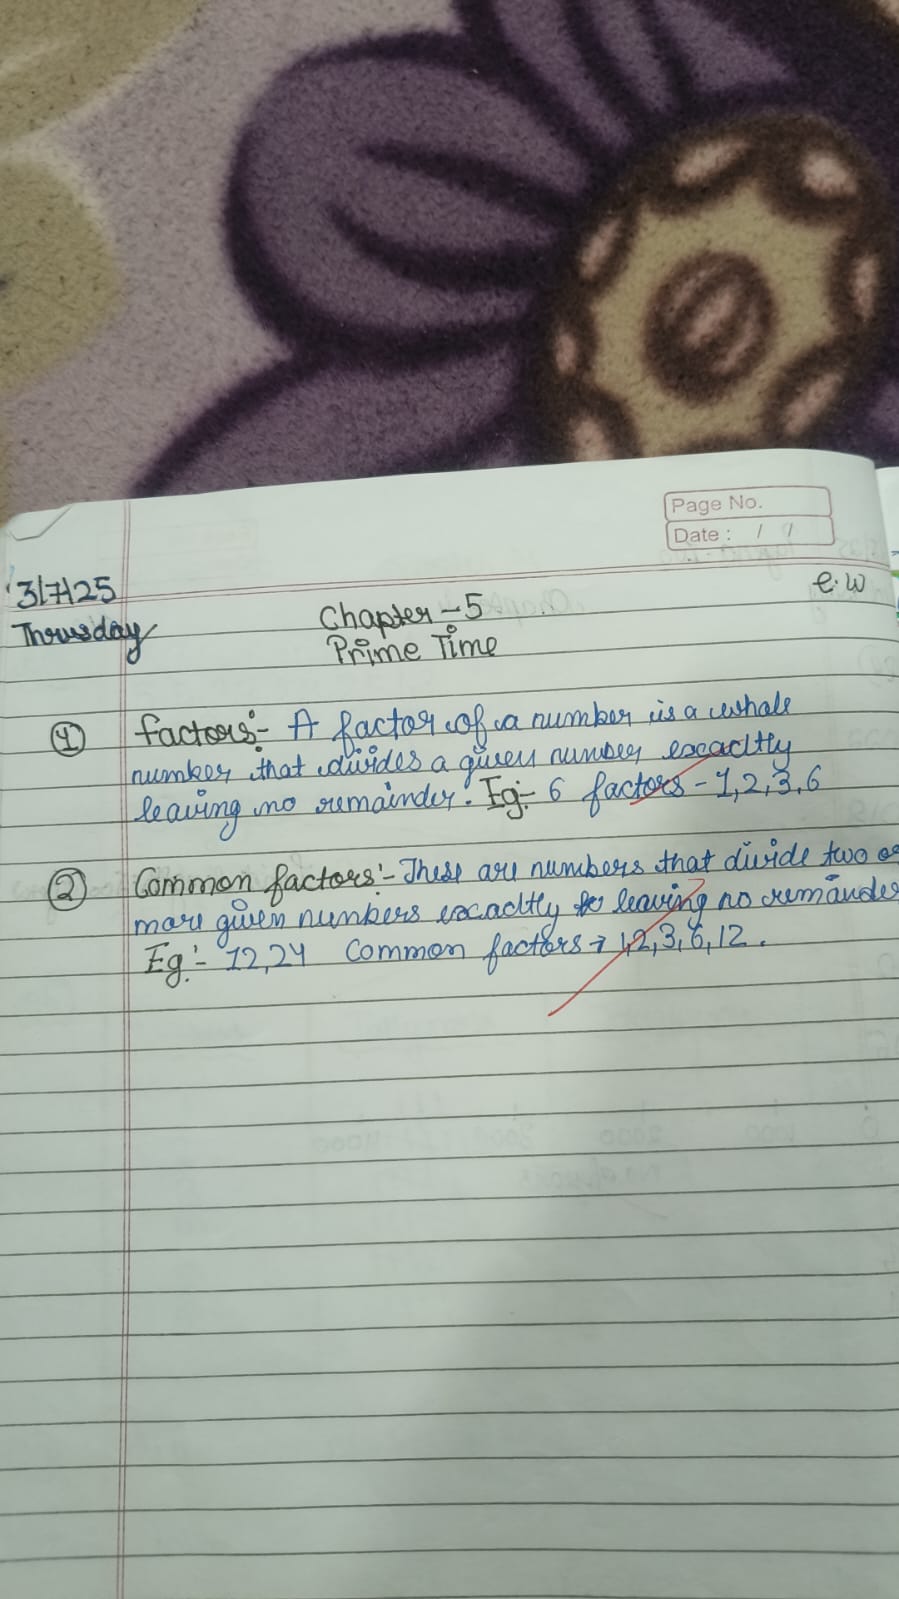 Page No.
Date : / /
3/7/25
c.w
Thrusday
Chapter - 5
Prime Time
1 factors:- A factor of a number is a whole
number that divides a given number excactlty
leaving no remainder. Eg:- 6 factors - 1,2,3,6
2 Common factors:- These are numbers that divide two or
more given numbers excactlty leaving no remainder
Eg:- 12,24 Common factors → 1,2,3,6,12.